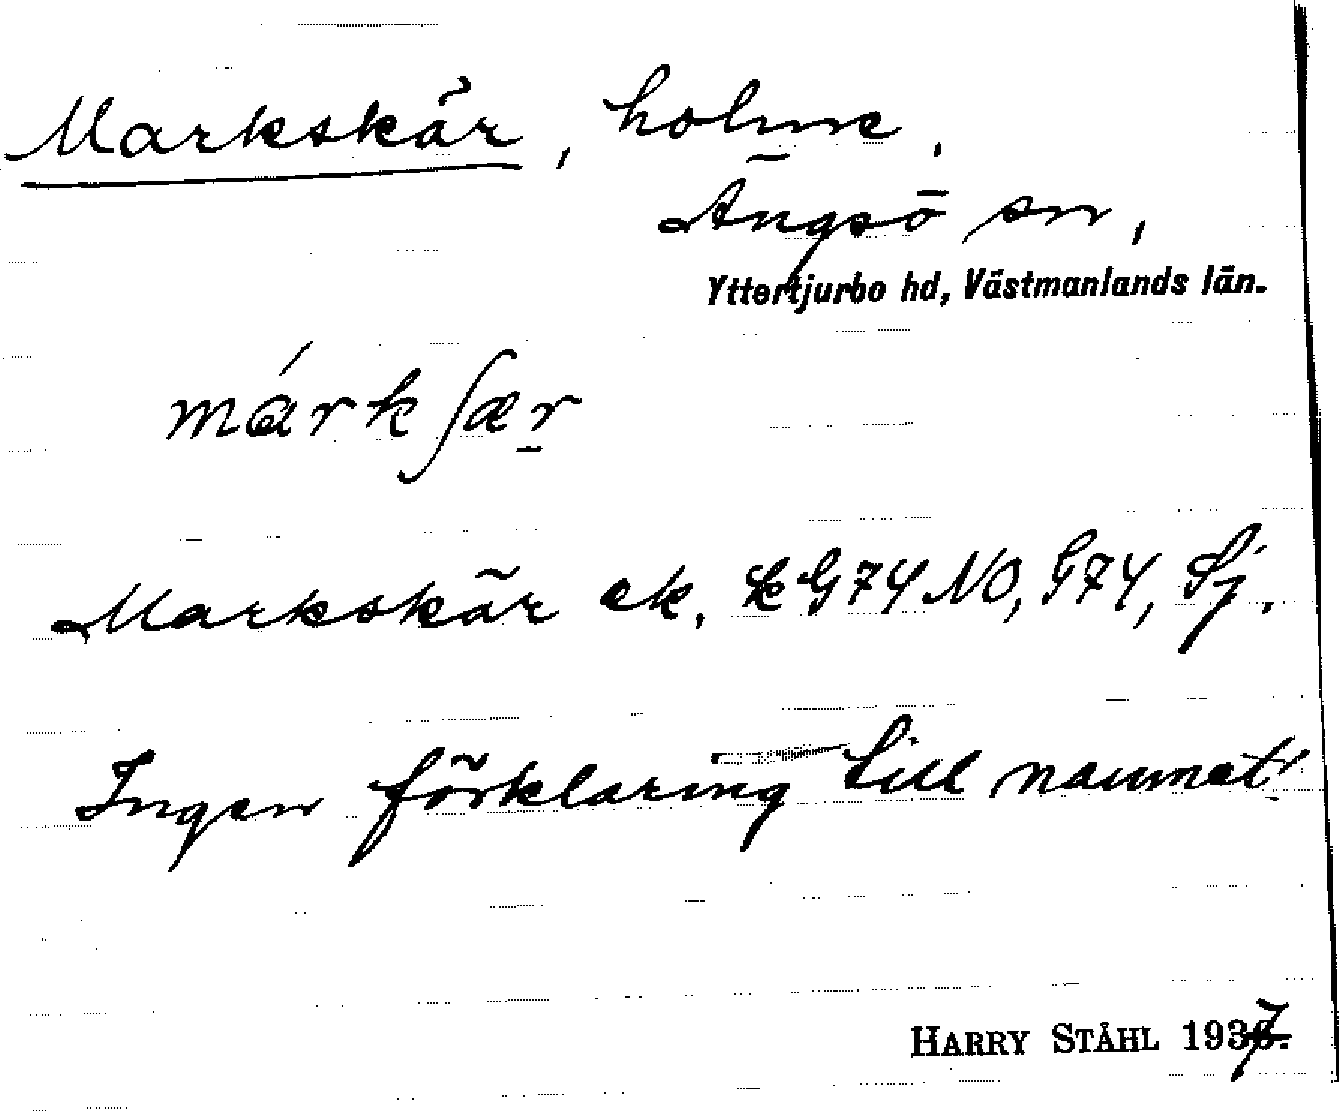 Markskär, holme,
Ängsö sn,
Yttertjurbo hd, Västmanlands län.
márkʃær̲
Markskär ek. G74 NO, G74, Sj.
Ingen förklaring till namnet
HARRY STÅHL 1937.